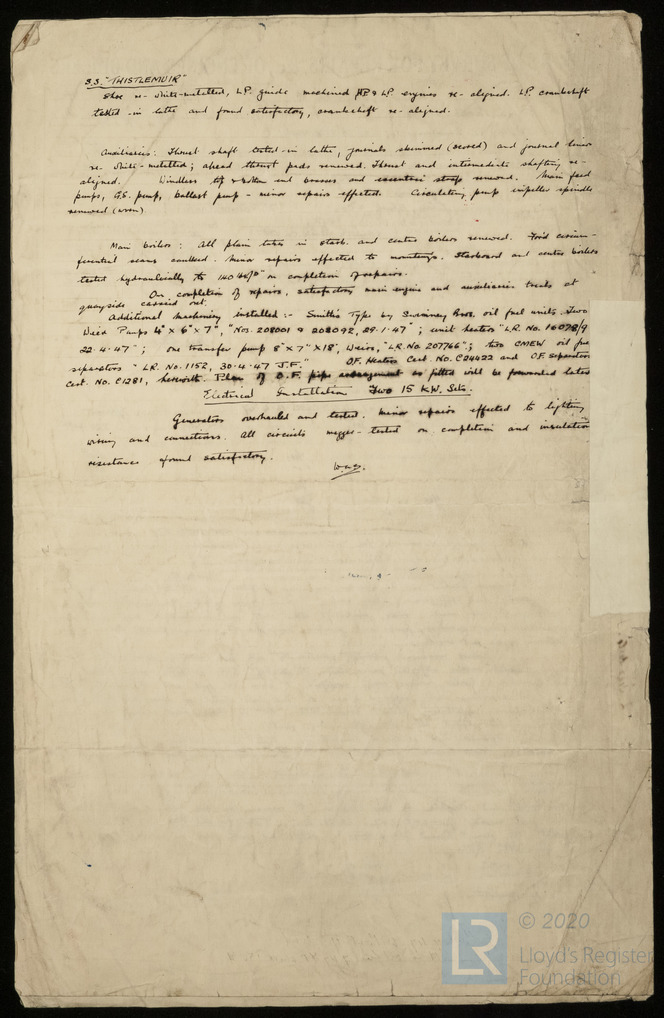 S.S. "THISTLEMUIR"
Shoe re-white-metalled, L.P. guide machined H.P. & L.P. engines re-aligned. L.P. crankshaft
tested in lathe and found satisfactory, crankshaft re-aligned.
Auxiliaries: Thrust shaft tested in lathe, journals skimmed (scored) and journal liner
re-white-metalled; ahead thrust pads renewed. Thrust and intermediate shafting re-
aligned. Windlass top & bottom end brasses and eccentric straps renewed. Main feed
pumps, G.S. pump, ballast pump - minor repairs effected. Circulating pump impeller spindle
renewed (worn).
Main boilers: All plain tubes in starb. and centre boilers renewed. Fwd circum-
ferential seams caulked. Minor repairs effected to mountings. Starboard and centre boilers
tested hydraulically to 140 lbs/□" on completion of repairs.
On completion of repairs, satisfactory main engine and auxiliaries trials at
quayside carried out.
Additional machinery installed :- Smith's Type by Swinney Bros. oil fuel units. Two
Weir Pumps 4" x 6" x 7", "Nos. 208001 & 208092, 29.1.47"; unit heaters "L.R. No. 16078/9
22.4.47"; one transfer pump 8" x 7" x 18", Weirs, "L.R. No. 207766"; two CMEW oil fuel
separators "L.R. No. 1152, 30.4.47 J.F." O.F. Heaters Cert. No. C24422 and O.F. separators
Cert. No. C1281, herewith. Plan of O.F. pipe arrangement as fitted will be forwarded later
Electrical Installation Two 15 KW. Sets.
Generators overhauled and tested. Minor repairs effected to lighting
wiring and connections. All circuits megger-tested on completion and insulation
resistances found satisfactory.
© 2020
LR
Lloyd's Register
Foundation